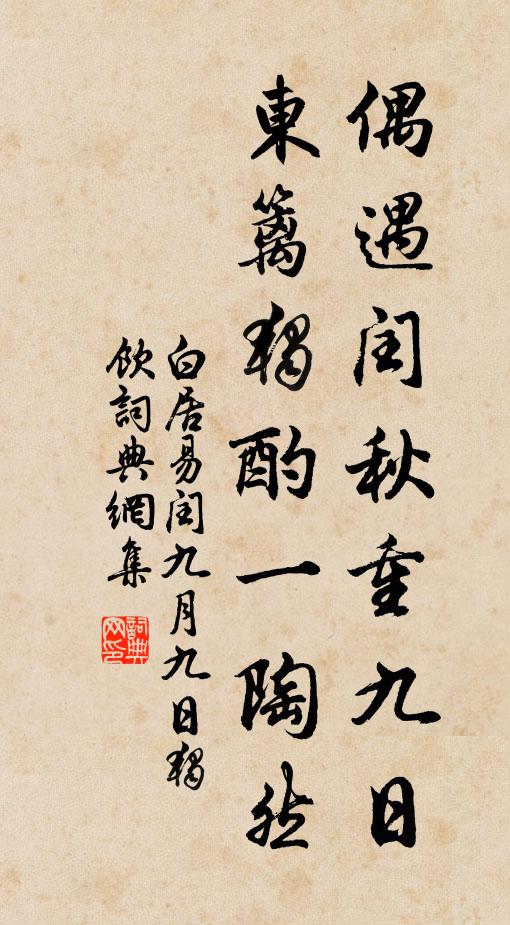 偶遇闰秋重九日
東篱獨酌一陶然
白居易闰九月九日獨
飲詞典網集
詞典网印